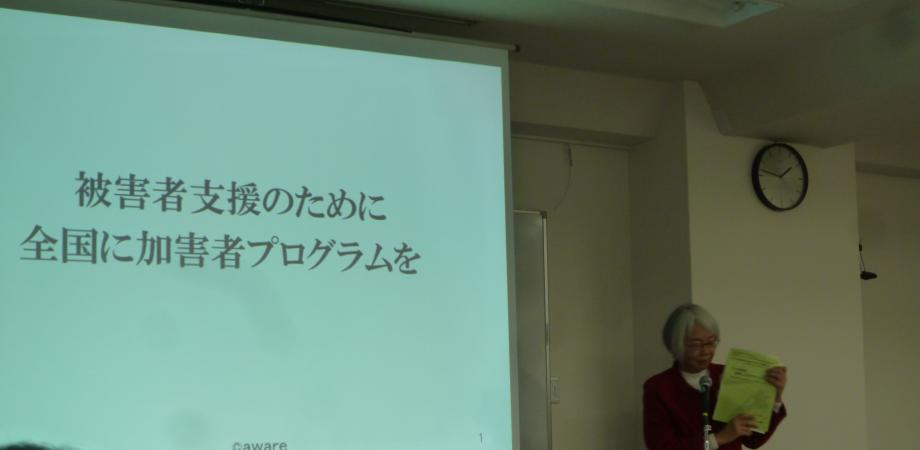 被害者支援のために
全国に加害者プログラムを
©aware
1